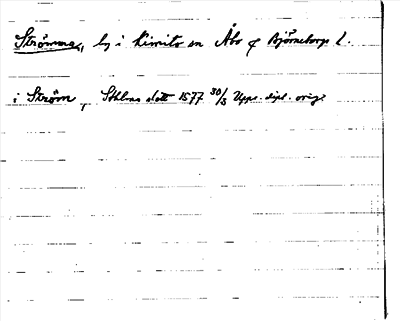 Strömma, by i Kimito sn Åbo o Björneborgs l.
i Ström, Sthlms slott 1577 30/3 Upps. dipl. orig.